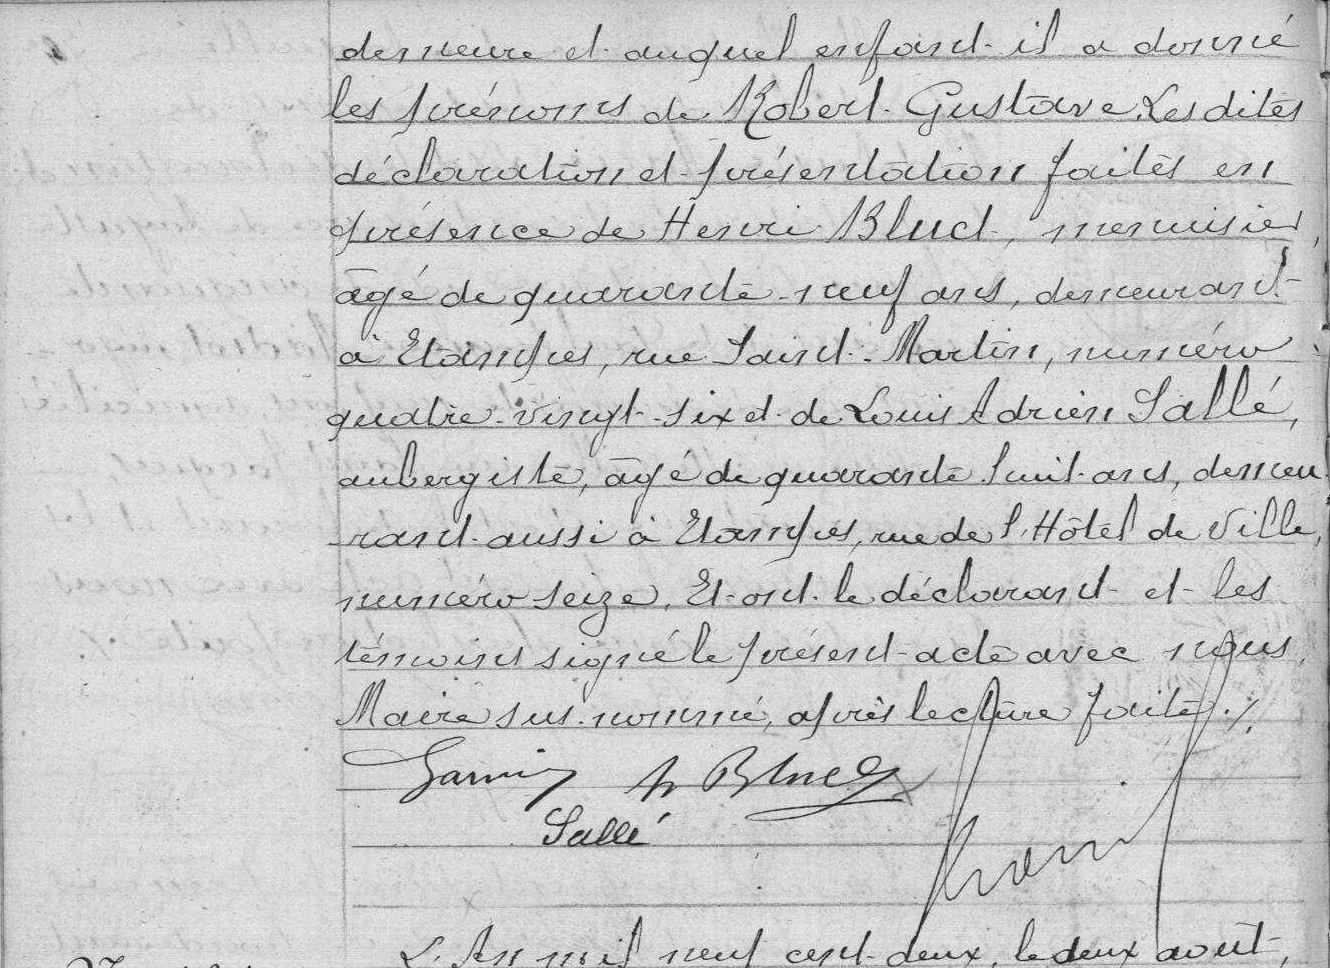 demeure et auquel enfant il a donné
les prénoms de Robert Gustave. Les dites
déclaration et présentation faites en
présence de Henri Blud, menuisier,
âgé de quarante-neuf ans, demeurant
à Etampes, rue Saint-Martin, numéro
quatre-vingt-six et de Louis Adrien Sallé,
aubergiste, âgé de quarante huit ans, demeu-
rant aussi à Etampes, rue de l'Hôtel de Ville,
numéro seize. Et ont le déclarant et les
témoins signé le présent acte avec nous,
Maire sus-nommé, après lecture faite./.
h Blud
Sallé
L'An mil neuf cent deux, le deux août,